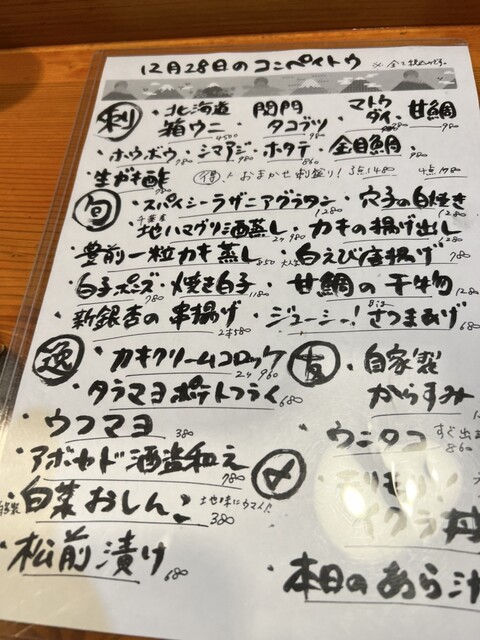 12月28日のコンペイトウ ※全て税込です。
刺 ・北海道箱ウニ 4500 ・関門タコブツ 980 ・マトウダイ 780 ・甘鯛 980
・ホウボウ 980 ・シマアジ 980 ・ホタテ 860 ・金目鯛 980
・生ガキ酢 780 得!おまかせ刺盛り! 3点1480 4点1980
旬 ・スパイシーラザニアグラタン 1280 ・穴子の白焼き 1280
千葉産 ・地ハマグリ酒蒸し 2ケ980 ・カキの揚げ出し 1280
・豊前一粒カキ蒸し 550 ・白えび唐揚げ 780
・白子ポン酢 980 ・焼き白子 1180 ・甘鯛の干物 1280
・新銀杏の串揚げ 2本580 ・ジューシー!さつまあげ 680
逸 ・カキクリームコロッケ 2ケ960
・タラマヨポテトフライ 680
・ウフマヨ 380
・アボカド酒盗和え 780
・白菜おしんこ 380 地味にウマイ!!
・松前漬け 680
友 ・自家製からすみ
・ウニタコ 860
〆
イクラ丼
・本日のあら汁